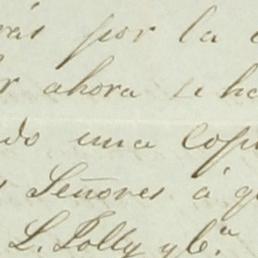 rás por la
r ahora se ha
do una cop
s Señores á q
L. Jolly y C.ª